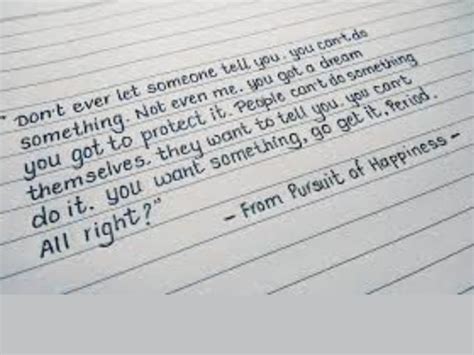 "Don't ever let someone tell you. you can't do
something. Not even me. you got a dream
you got to protect it. People can't do something
themselves. they want to tell you. you can't
do it. you want something, go get it. Period.
All right?"
- From Pursuit of Happiness -